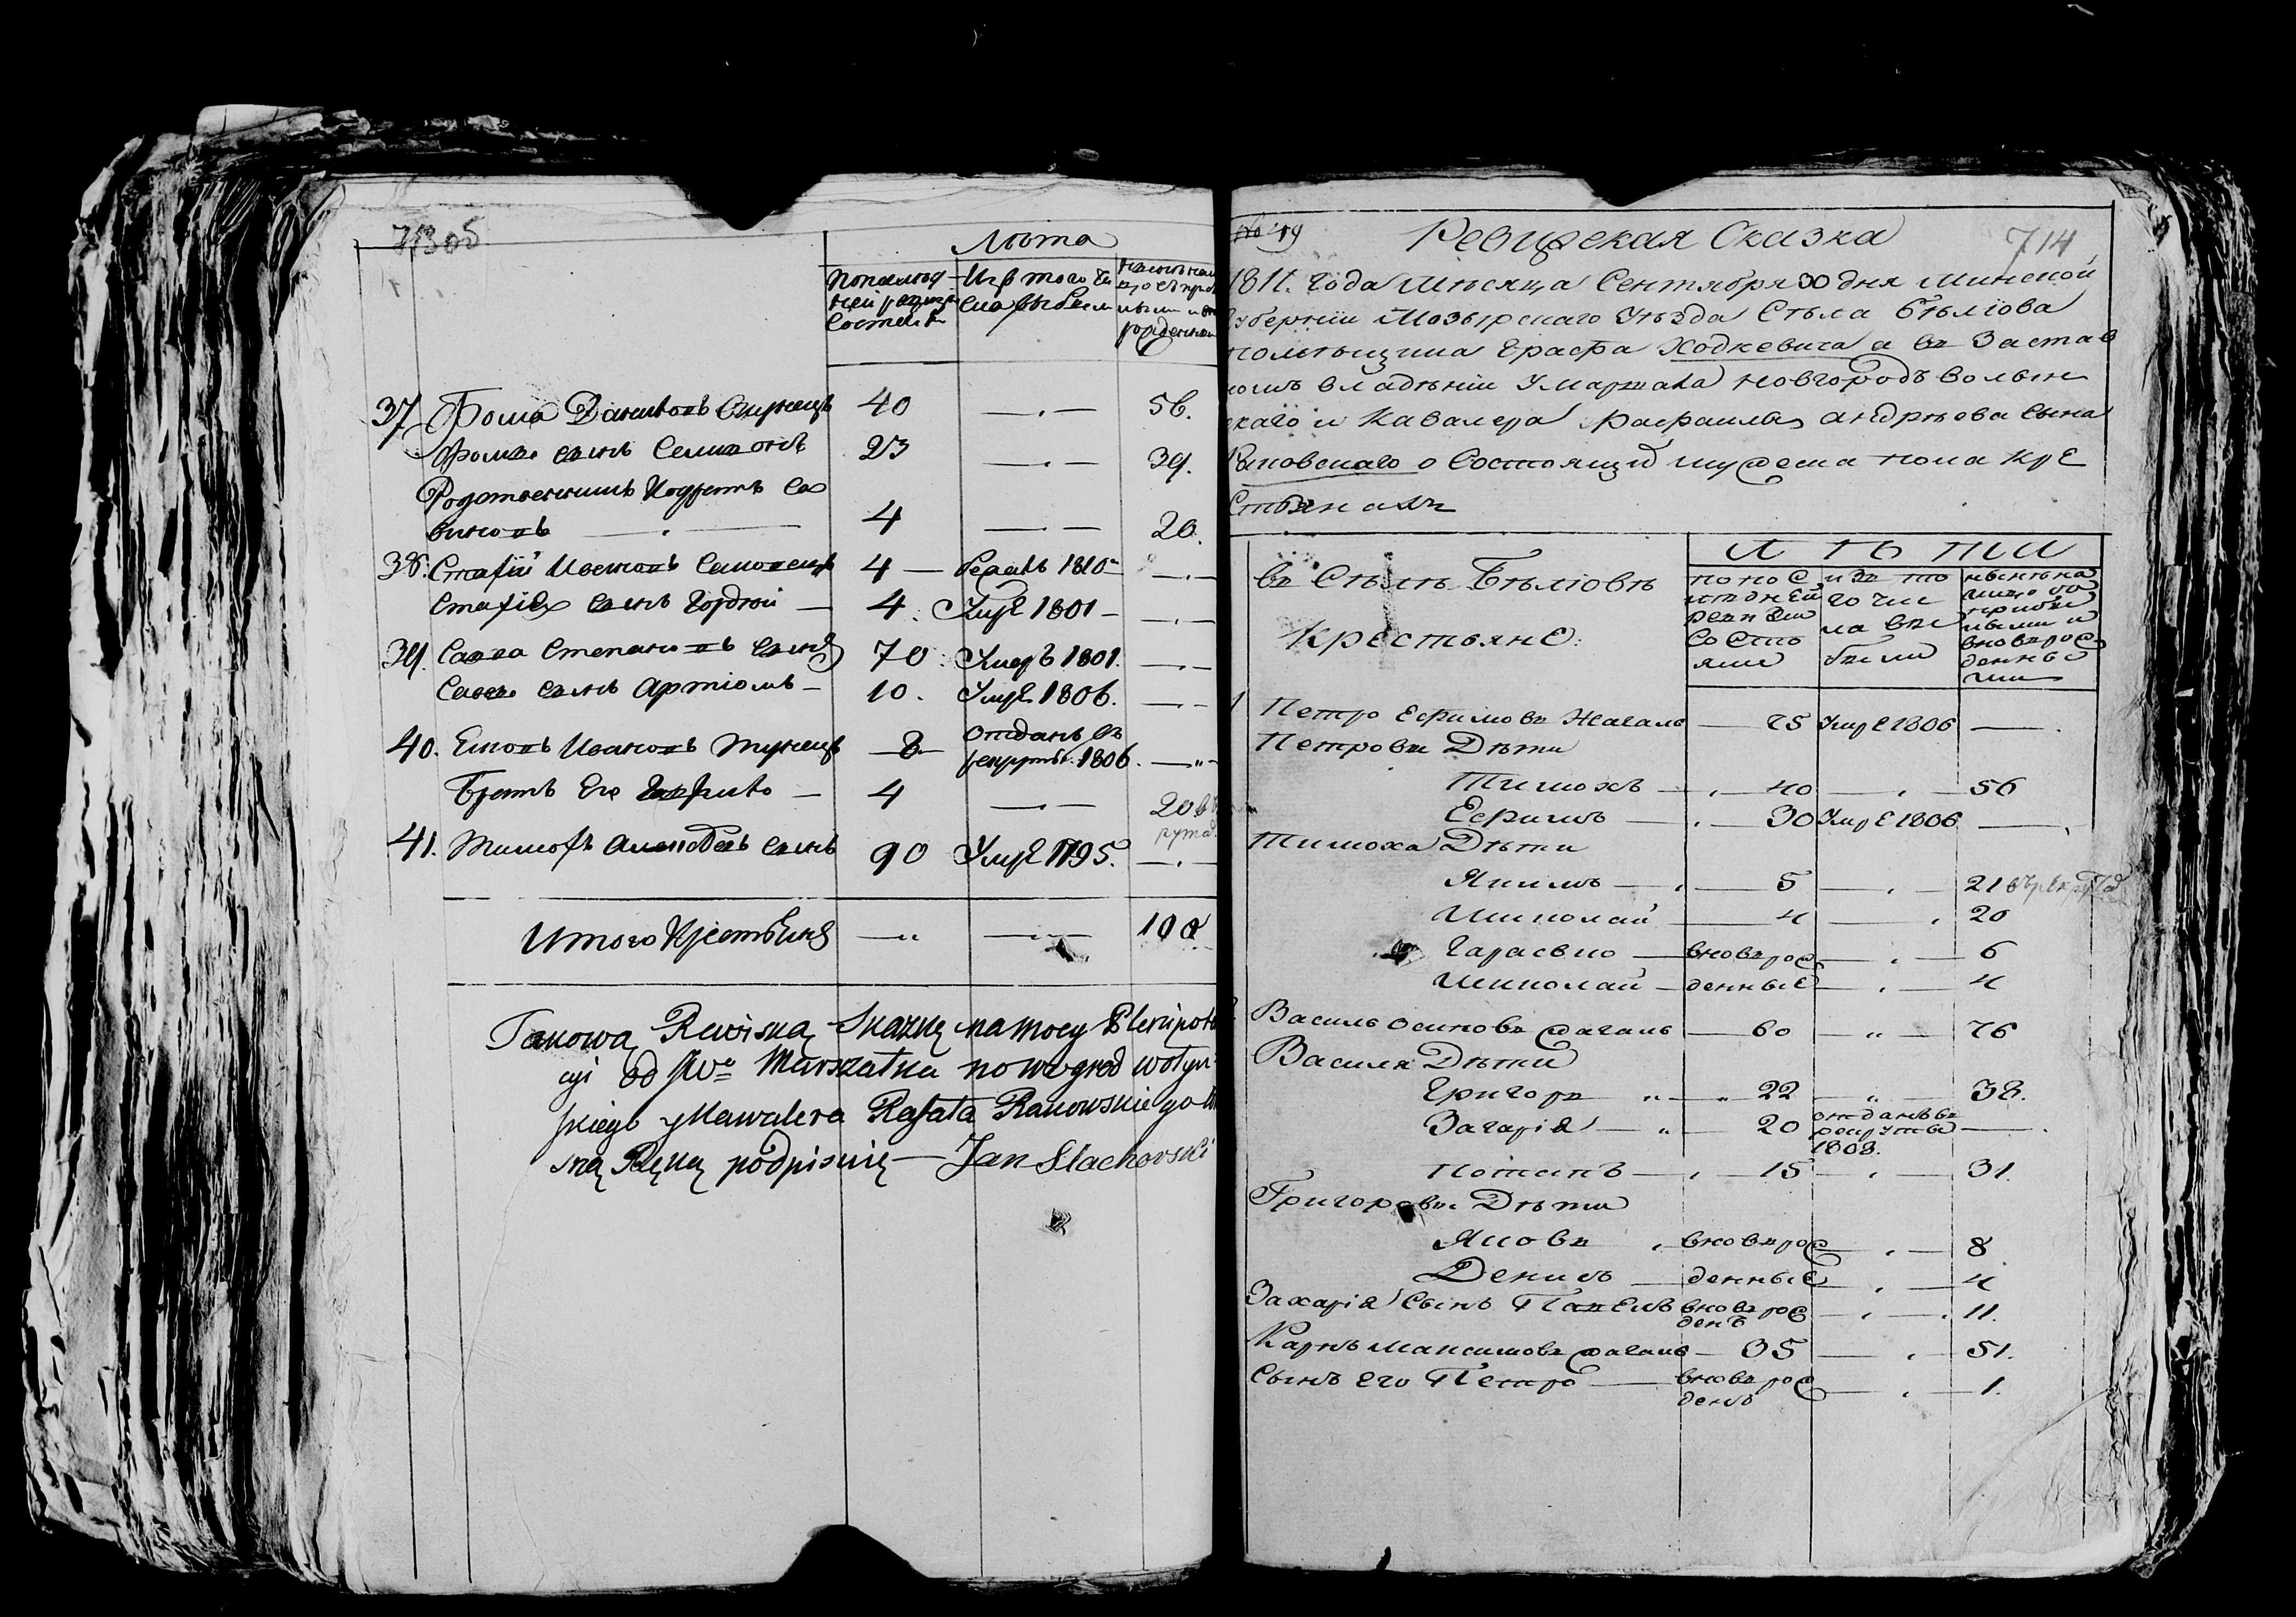 713об
Лѣта
По последней ревизіи состояло
Изъ того числа выбыло
37. Фома Даниловъ 40 —.— 56.
Фомы сынъ Семионъ 23 —.— 39.
Родственникъ Кодратъ Са
виновъ —.— 4 —.— 20.
38. Стафій 4 — 1810 —.—
Стафія сынъ Гордей — 4. Умре 1801 — —.—
39. Савва Степановъ сынъ 70. Умеръ 1801. —.—
Саввы сынъ Артіомъ — 10. Умре 1806. —.—
40. Ивановъ 8 — отданъ въ
рекруты 1806. —"—
Братъ Его Гаврило — 4 —.— 20 въ
рута
41. Тимофъ сынъ 90 Умре 1795. —.—
Итого Крестьянъ —"— —.— 108
Takową Rewiską Skazkę na mocy Plenipoten
cyi od JWo Marszałka nowogrod wołyn
skiego y Kawalera Rafała Rakowskiego
sną Ręką podpisuię — Jan Stachowski
№ 49
Ревижская Сказка
714
1811. Года Мѣсяца Сентября 30 дня Минской
Губерніи Мозырскаго Уѣзда Стьла Бѣліова
Графа Ходкевича а въ Застав
номъ владѣніи У Маршала Новгородъ волын
скаго и Кавалера Рафаила Андрѣова сына
Раковскаго о Состоящих мужеска пола кре
стьянахъ
Лѣта
въ Стьлѣ Бѣліовѣ
Крестьяне.
по пос
лѣдней
ревизіи
состо
яло
изъ то
го чис
ла вы
были
нынѣ на
лицо со
прибы
лыми и
вновь рож
денны
ми
1 Петро Ефимовъ Жагаль — 75 Умре 1806 —.
Петровы Дѣти
Тимохъ —.— 40 —.— 56
Ефимъ —.— 30 Умре 1806 —.
Тимоха Дѣти
Якимъ —.— 5 —.— 21 въ рекрута
Миколай — 4 —.— 20
Гарасимо — вновь рож —.— 6
Миколай — денные —.— 4
Василь Осиповъ Жагаль — 60 —"— 76
Василя Дѣти
Григоръ " — " 22 —"— 38.
Захарія — " — 20 отданъ въ
рекруты
1808. —.
Потапъ —.— 15 —.— 31.
Григоровы Дѣти
Яковъ . вновь рож —.— 8
Денисъ — денные —.— 4
Захарія Сынъ Павелъ вновь рож
денъ —.—. 11.
Карпъ Максимовъ Жагаль — 35 —.— 51.
Сынъ его Петро — вновь рож
денъ —.— 1.